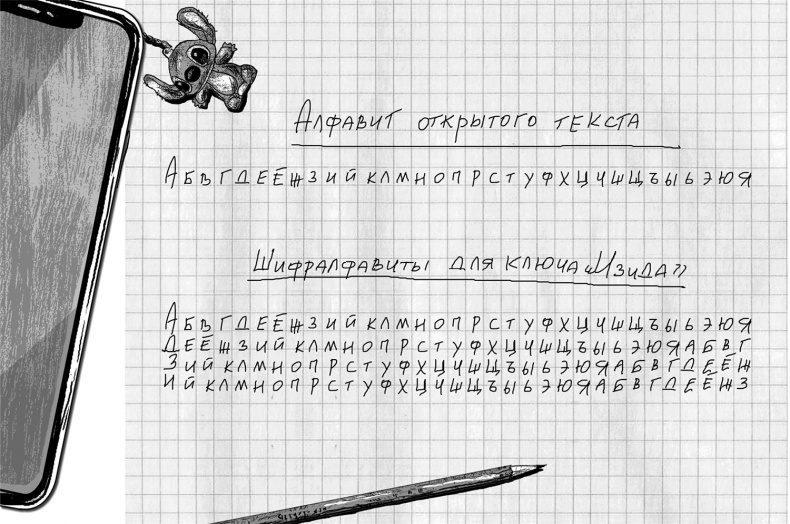 Алфавит открытого текста
А Б В Г Д Е Ё Ж З И Й К Л М Н О П Р С Т У Ф Х Ц Ч Ш Щ Ъ Ы Ь Э Ю Я
Шифралфавиты для ключа «Изида»
А Б В Г Д Е Ё Ж З И Й К Л М Н О П Р С Т У Ф Х Ц Ч Ш Щ Ъ Ы Ь Э Ю Я
Д Е Ё Ж З И Й К Л М Н О П Р С Т У Ф Х Ц Ч Ш Щ Ъ Ы Ь Э Ю Я А Б В Г
З И Й К Л М Н О П Р С Т У Ф Х Ц Ч Ш Щ Ъ Ы Ь Э Ю Я А Б В Г Д Е Ё Ж
И Й К Л М Н О П Р С Т У Ф Х Ц Ч Ш Щ Ъ Ы Ь Э Ю Я А Б В Г Д Е Ё Ж З